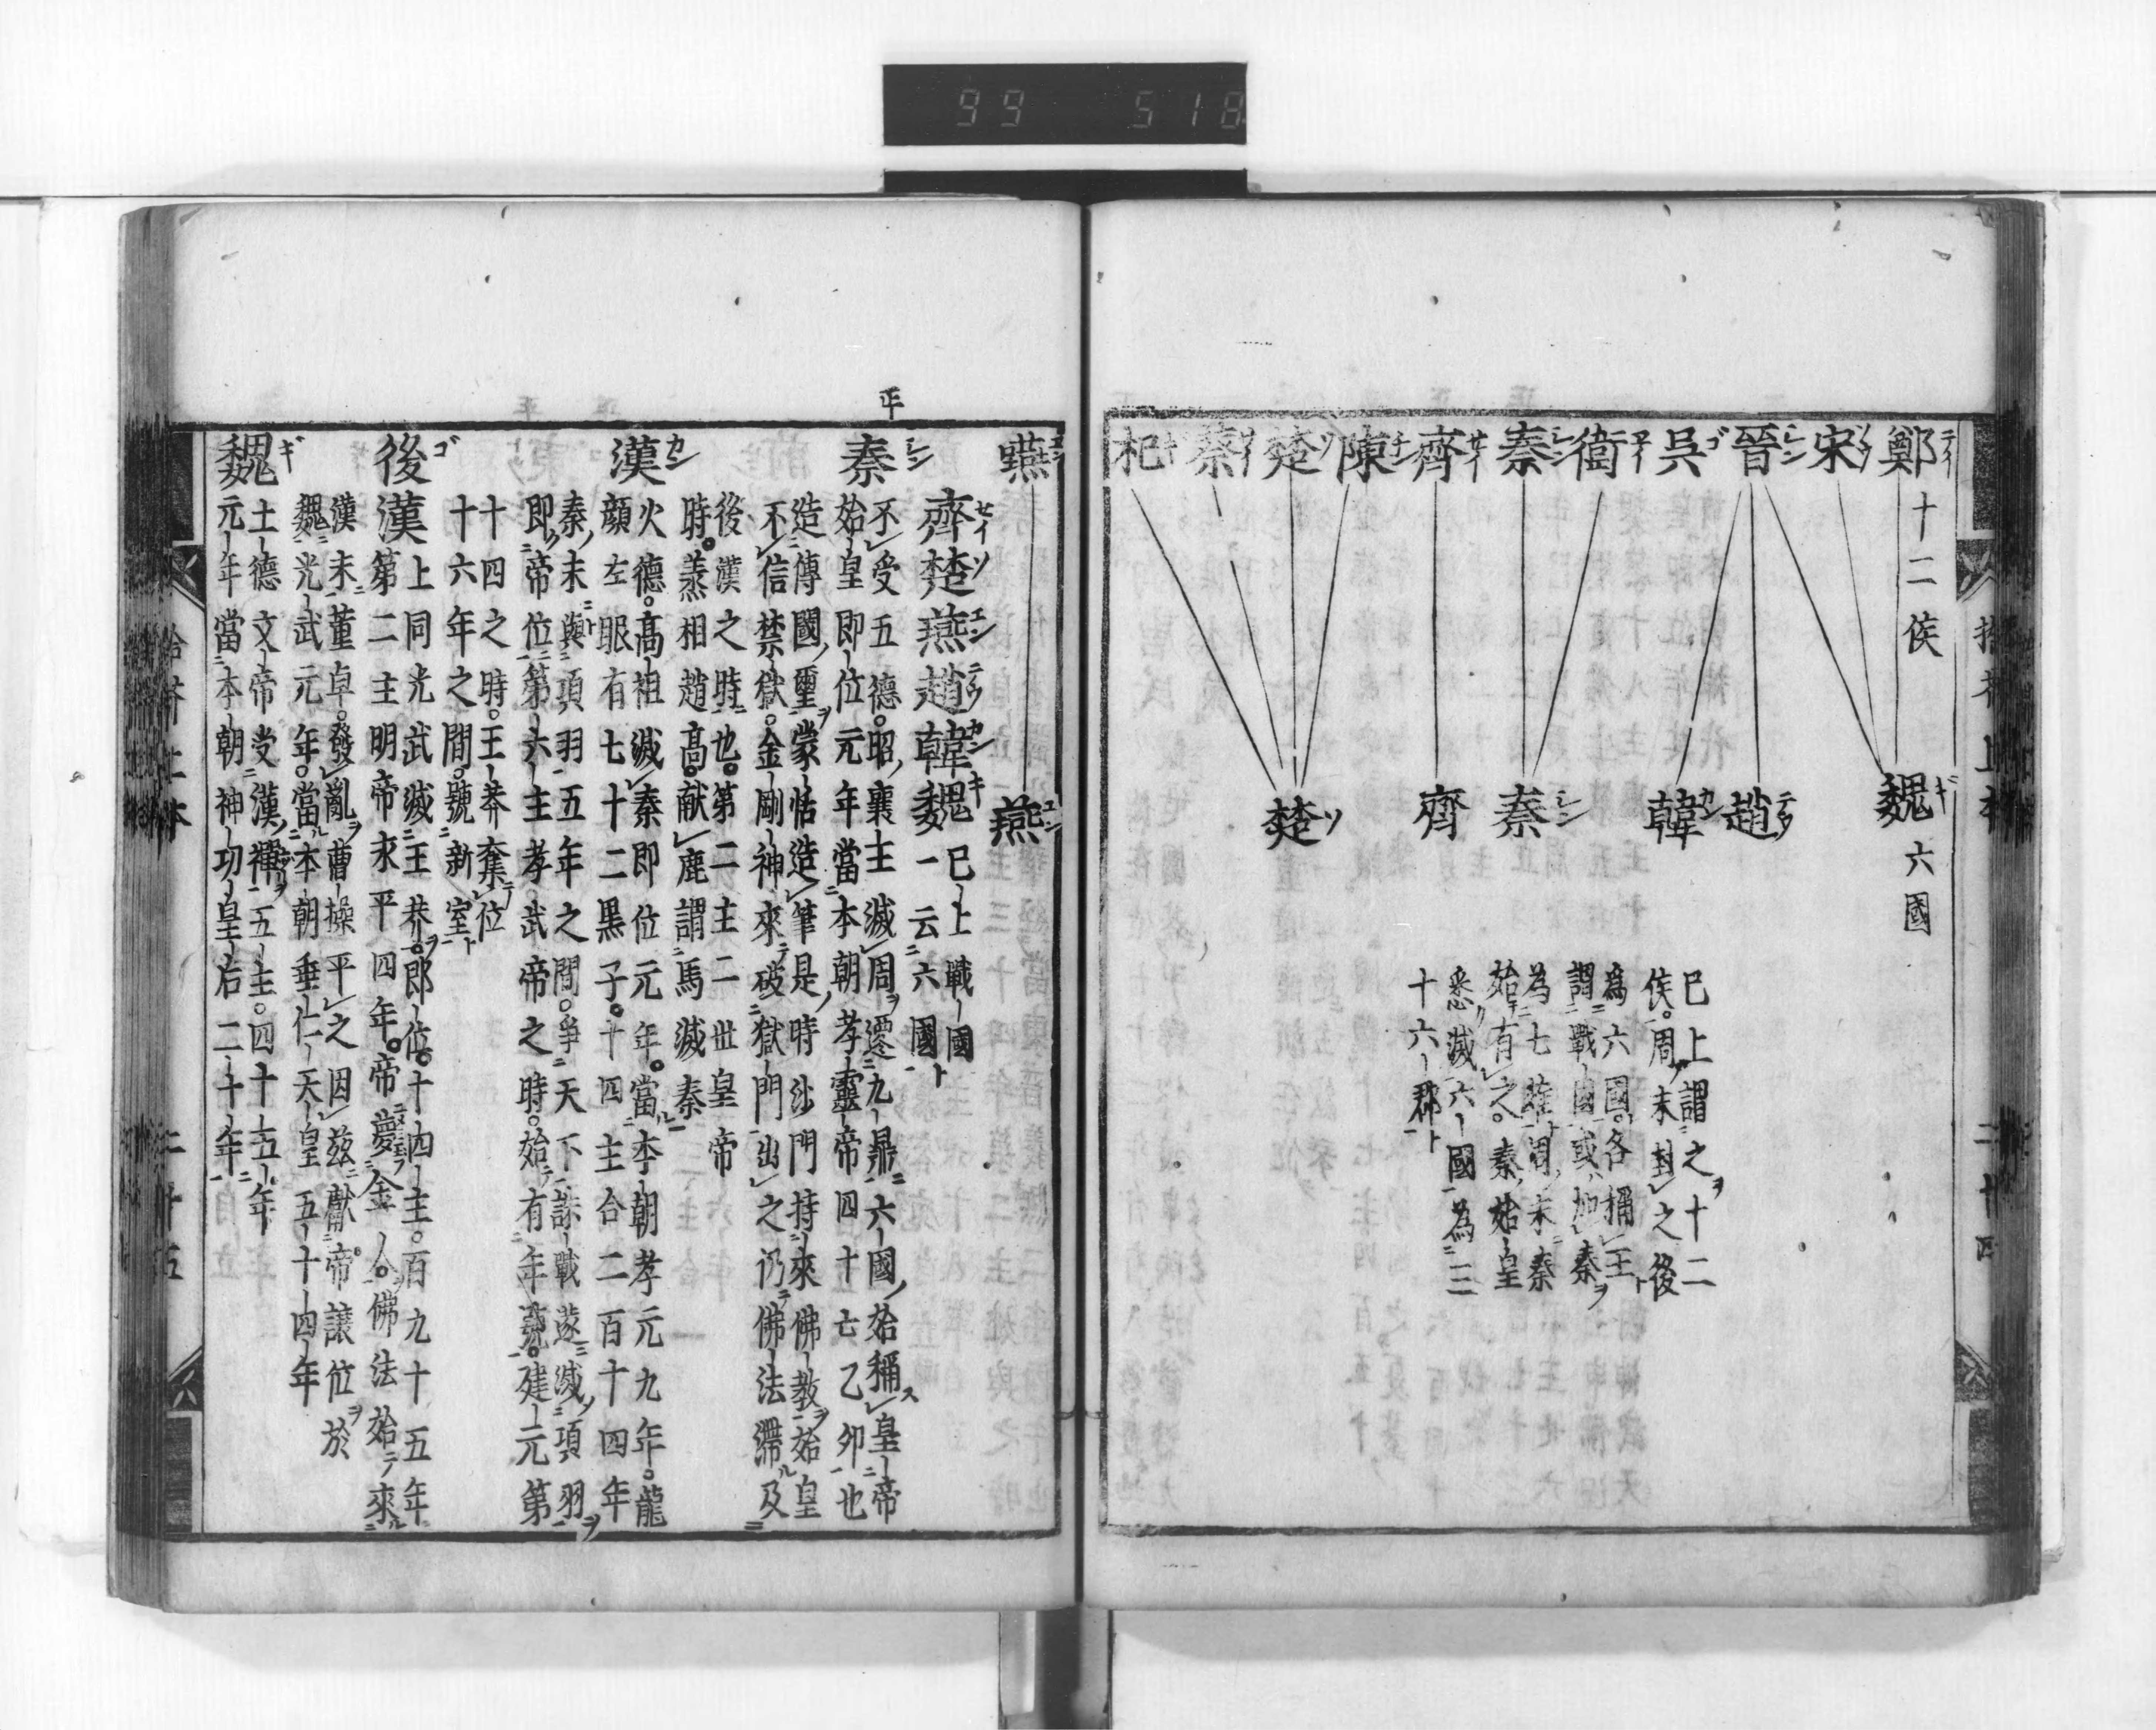 99 518
鄭 宋 晉 吳 衞 秦 齊 陳 楚 蔡 杞
十二侯
魏 趙 韓 秦 齊 楚
六國
已上謂之十二
侯周末封之後
為六國各稱王
謂戰國或加秦
為七雄周末秦
始有之秦始皇
悉滅六國為三
十六郡
二十四
燕 燕
齊楚燕趙韓魏已上戰國
一云六國
秦
不受五德昭襄主滅周遷九鼎六國始稱皇帝
始皇即位元年當本朝孝靈帝四十七乙卯也
造傳國璽蒙恬造筆是時沙門持來佛教始皇
不信禁獄金剛神來破獄門出之仍佛法滯及
後漢之時也第二主二世皇帝
時羕相趙高献鹿謂馬滅秦
漢
火德高祖滅秦即位元年當李朝孝元九年龍
顔左眼有七十二黒子十四主合二百十四年
秦末與項羽五年之間爭天下誅戰遂滅項羽
即帝位第六主孝武帝之時始有年號建元第
十四之時王莽奪位
十六年之間號新室
後漢
上同光武滅王莽郎位十四主百九十五年
第二主明帝永平四年帝夢金人佛法始來
漢末董卓發亂曹操平之囚茲獻帝讓位於
魏光武元年當本朝垂仁天皇五十四年
魏
土德文帝受漢禪五主四十五年
元年當本朝神功皇后二十年
拾芥上本
二十五